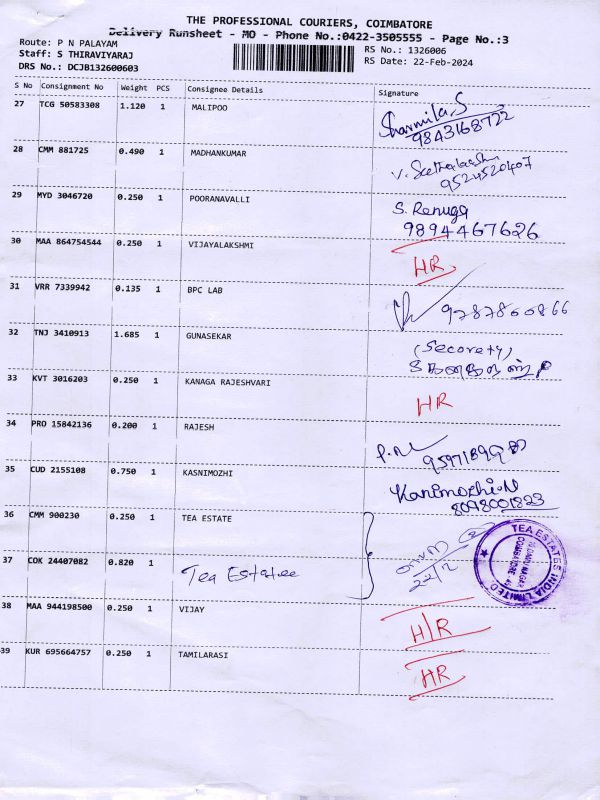 THE PROFESSIONAL COURIERS, COIMBATORE
Delivery Runsheet - MO - Phone No.:0422-3505555 - Page No.:3
Route: P N PALAYAM
RS No.: 1326006
Staff: S THIRAVIYARAJ
RS Date: 22-Feb-2024
DRS No.: DCJB132600603
S No Consignment No Weight PCS Consignee Details Signature
27 TCG 50583308 1.120 1 MALIPOO Sharmila.S
9843168722
28 CMM 881725 0.490 1 MADHANKUMAR
9524520407
29 MYD 3046720 0.250 1 POORANAVALLI S. Renuga
9894467626
30 MAA 864754544 0.250 1 VIJAYALAKSHMI HR
31 VRR 7339942 0.135 1 BPC LAB 9787860866
32 TNJ 3410913 1.685 1 GUNASEKAR (Secorety)
33 KVT 3016203 0.250 1 KANAGA RAJESHVARI HR
34 PRO 15842136 0.200 1 RAJESH
35 CUD 2155108 0.750 1 KASNIMOZHI Kanimozhi.N
8098001823
36 CMM 900230 0.250 1 TEA ESTATE
37 COK 24407082 0.820 1 Tea Estatee 22/2
TEA ESTATES INDIA LIMITED
COIMBATORE
38 MAA 944198500 0.250 1 VIJAY H/R
39 KUR 695664757 0.250 1 TAMILARASI HR